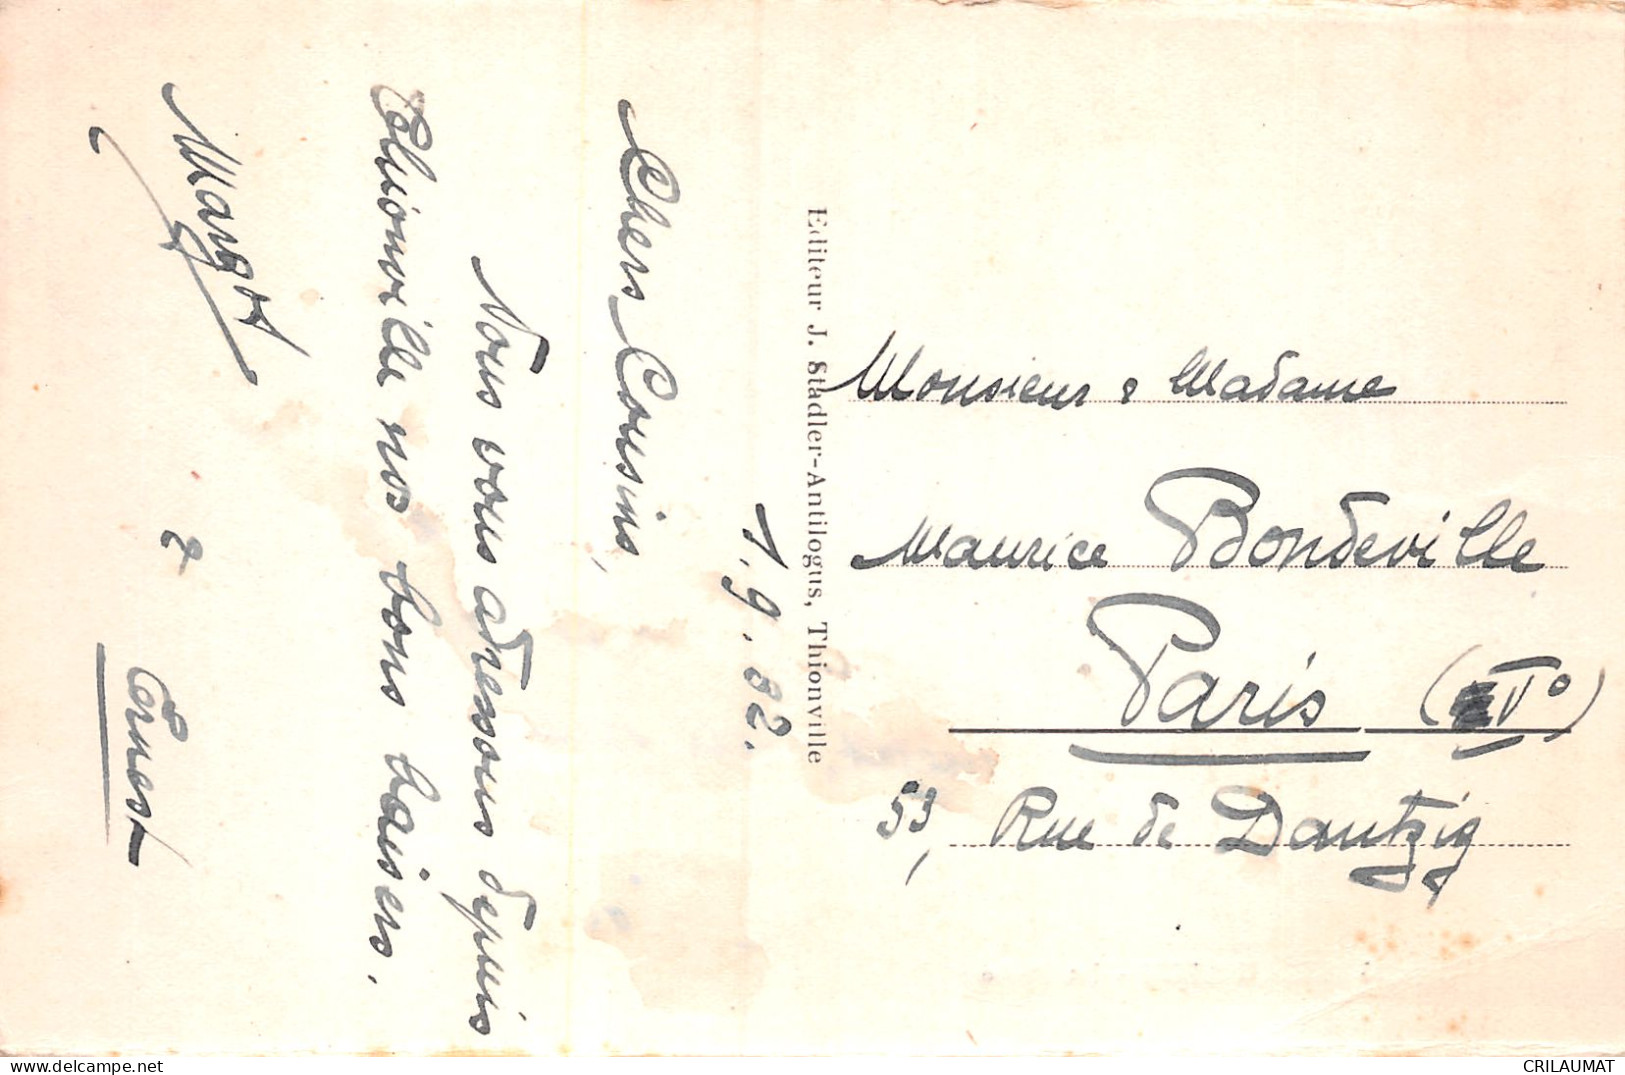 1.9.32.
Chers Cousins,
Nous vous adressons depuis
Thionville nos bons baisers.
Margot
&
Ernest
Editeur J. Stadler-Antilogus, Thionville
Monsieur & Madame
Maurice Bondeville
Paris (XV°)
53, Rue de Dantzig
CRILAUMAT